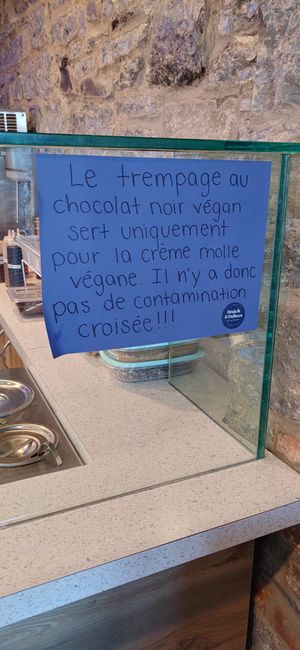 Le trempage au
chocolat noir végan
sert uniquement
pour la crème molle
végane. Il n'y a donc
pas de contamination
croisée!!!